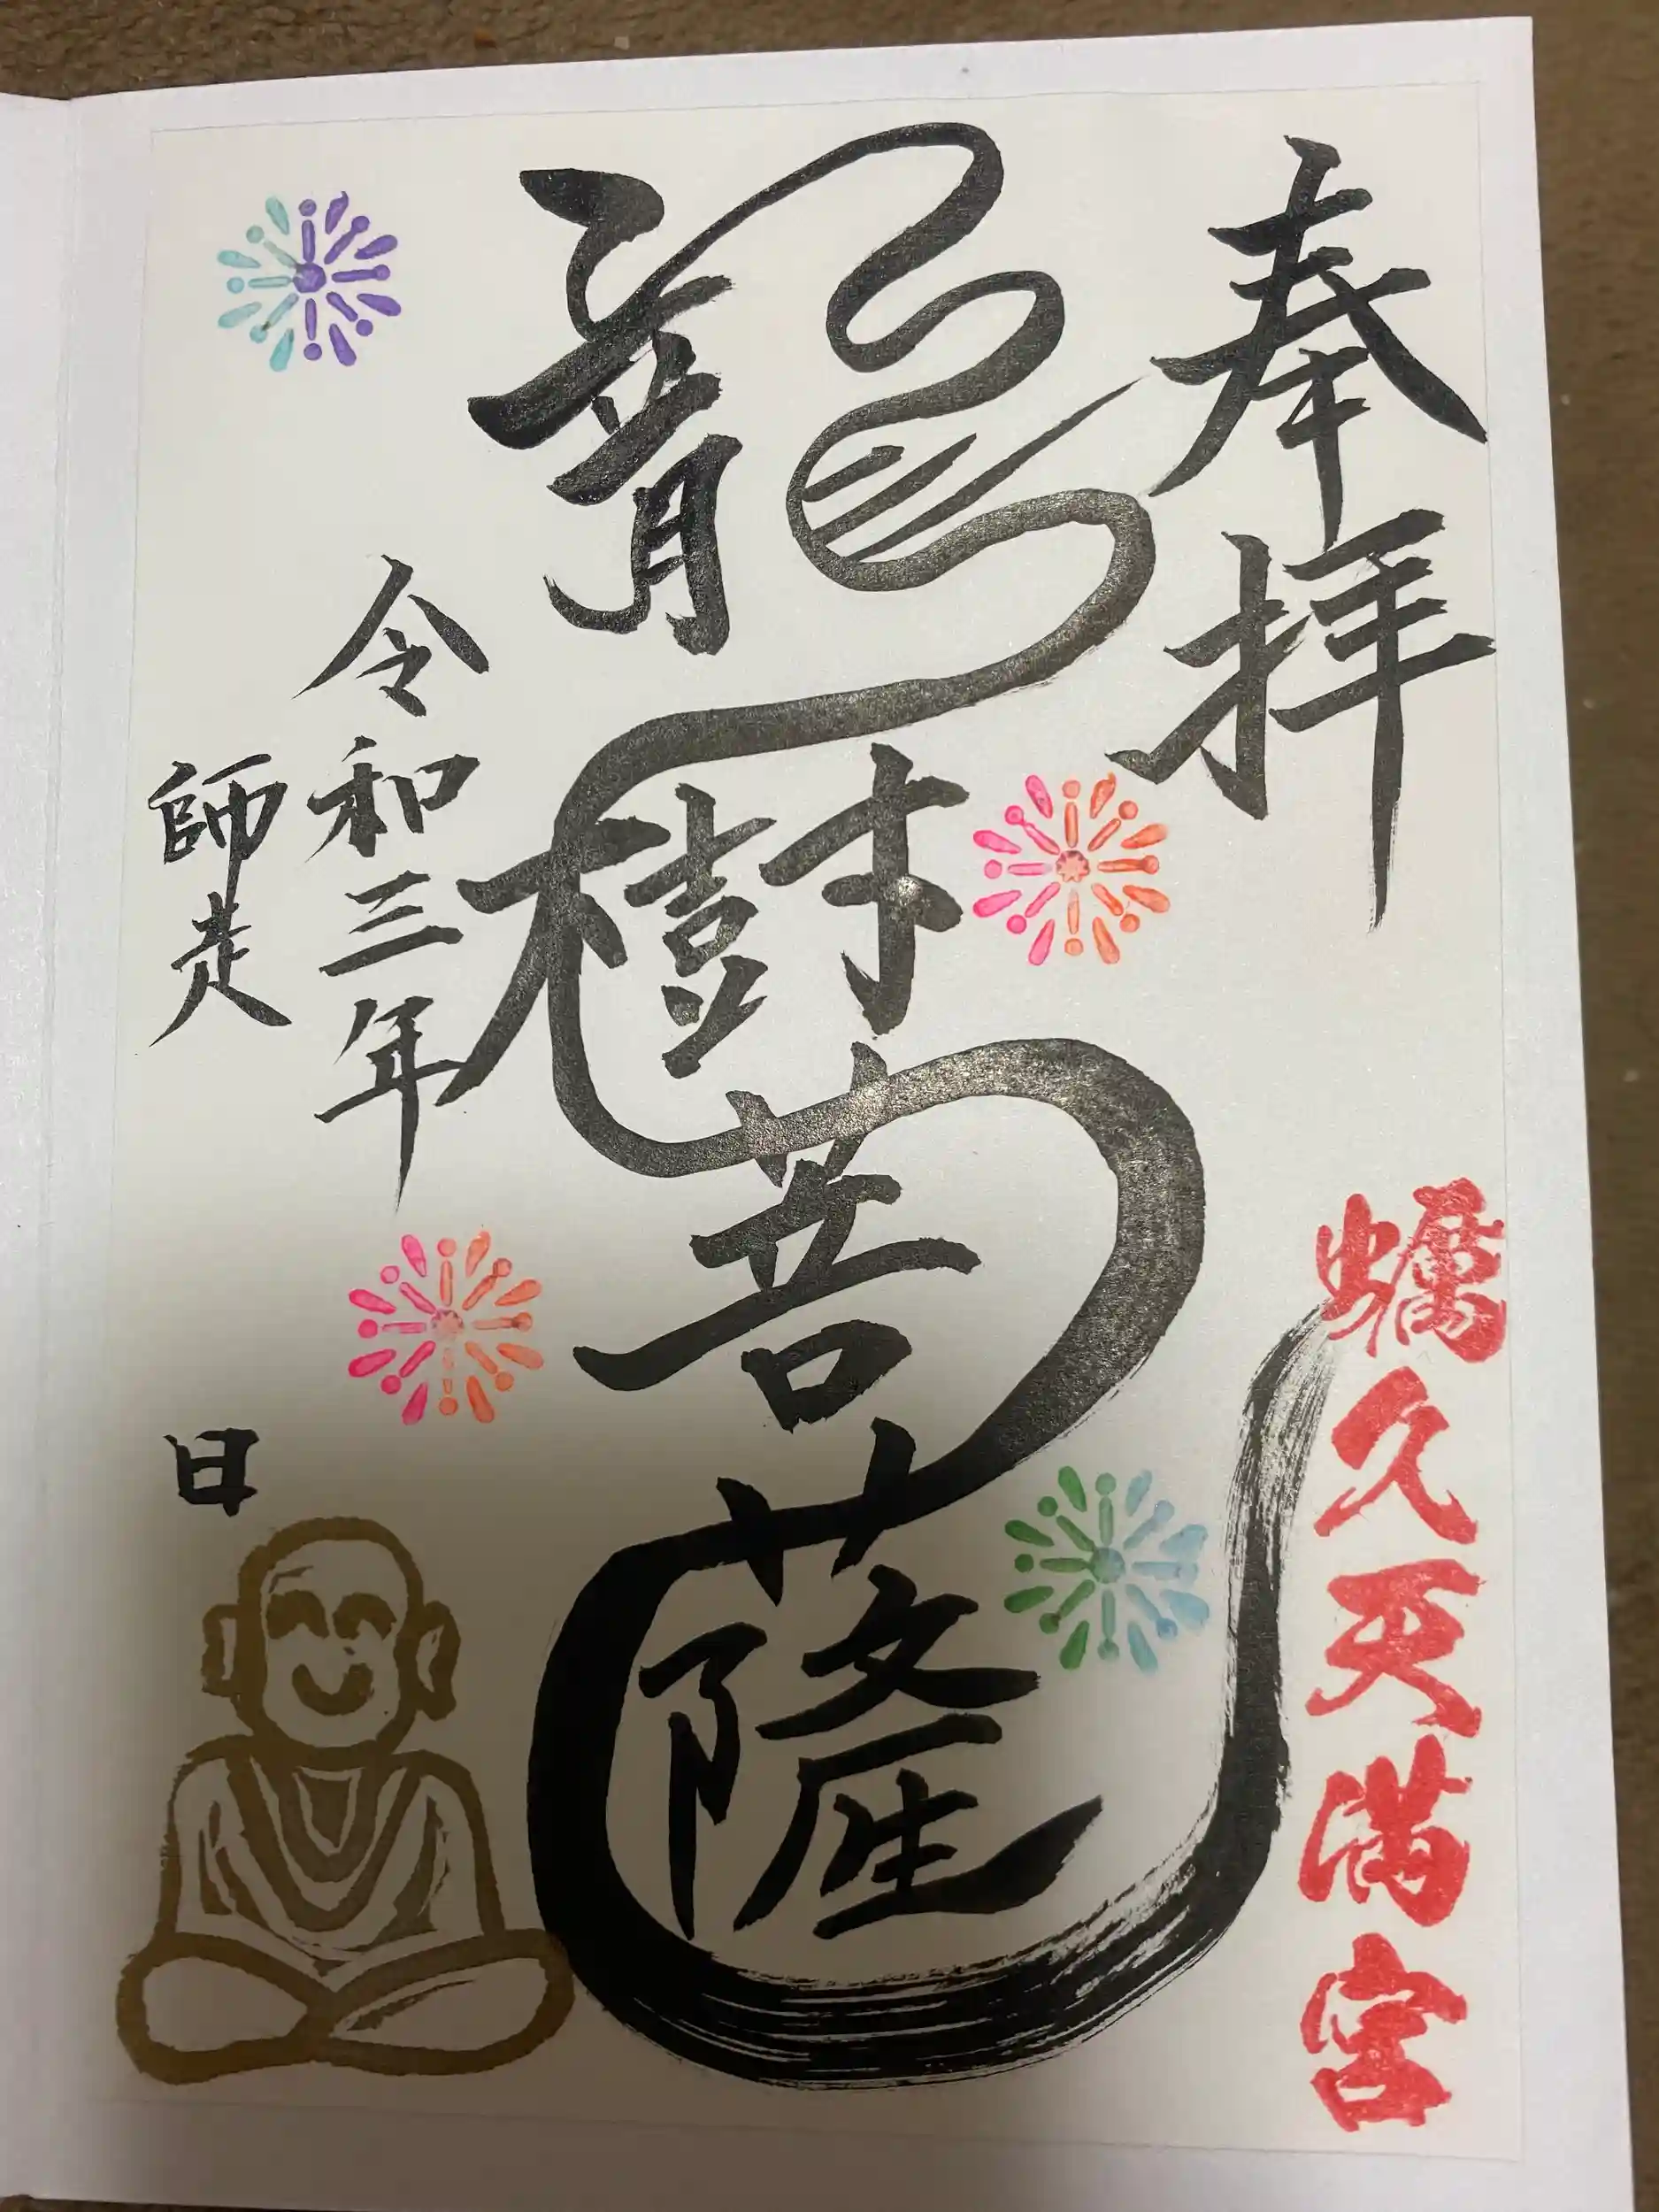 奉拝
龍樹菩薩
令和三年
師走
日
蠣久天満宮